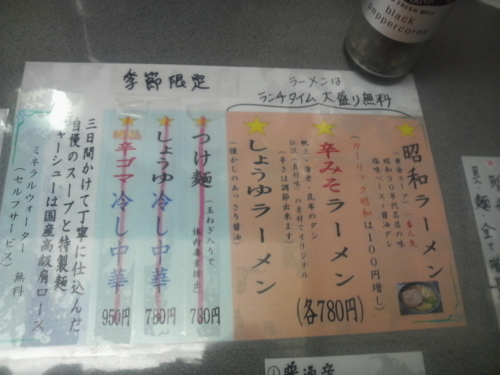 black
peppercorns
季節限定
ラーメンは
ランチタイム大盛り無料
昭和ラーメン
一番人気
(ガーリック昭和は100円増し)
辛みそラーメン
(辛さは調節出来ます)
しょうゆラーメン
(懐かしのあっさり醤油)
(各780円)
つけ麺
(玉ねぎ入りで
780円
しょうゆ冷し中華
780円
辛ゴマ冷し中華
950円
三日間かけて丁寧に仕込んだ
自慢のスープと特製麺
チャーシューは国産高級肩ロース
ミネラルウォーター 無料
(セルフサービス)